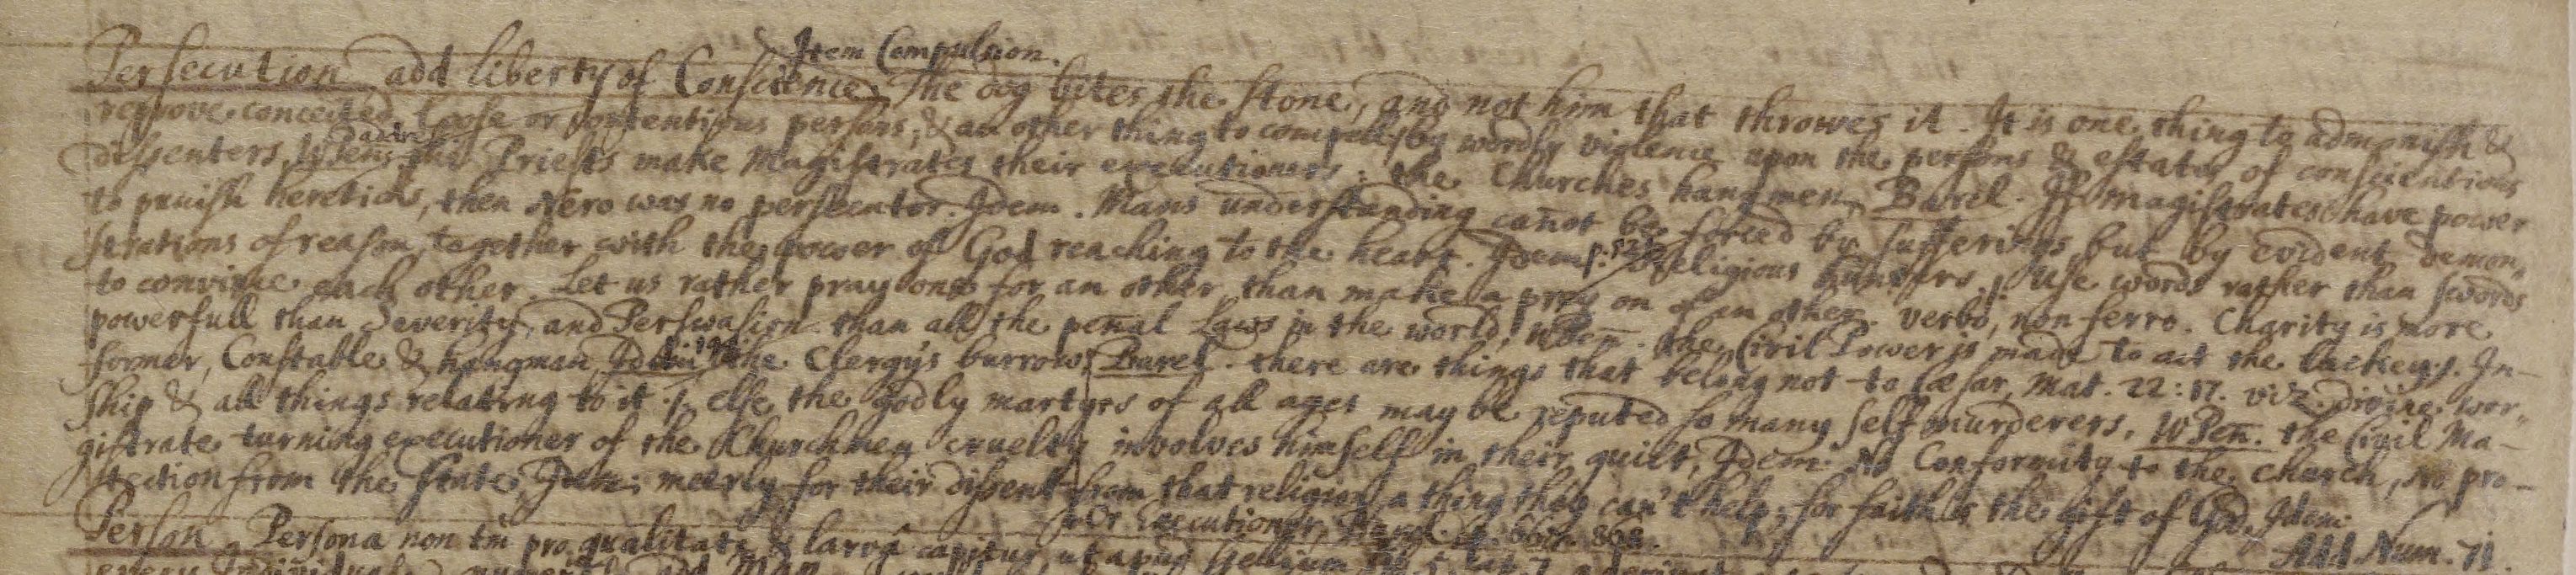 Item Compulsion.
Persecution, add liberty of Conscience. The dog bites the stone, and not him that throwes it. It is one thing to admonish &
reprove conceited, loose or contentious persons, & an other thing to compell by wordly violence upon the persons & estates of conscientious
dissenters, WPenn, addre the Priests make Magistrates their executioners: the Churches hangmen, Barcl. If magistrates have power
to punish hereticks, then Nero was no persecutor. Idem. Mans understanding cañot be forced by sufferings, but by evident demon„
strations of reason, together with the power of God reaching to the heart. Idem p: religious hunters. Use words rather than swords
to convince each other. Let us rather pray one for an other, than make a prey on of an other. verbo, non ferro. Charity is more
powerfull than Severity, and Perswasion than all the penal Laws in the world, WPen. the Civil Power is made to act the lackeys. In-
former, Constable & hangman, Idem the Clergy's burrow, Barcl. there are things that belong not to Cæsar, Mat. 22: 17. viz. divine wor„
ship & all things relating to it. else the godly martyrs of all ages may be reputed so many self murderers, WPen̄. the Civil Ma-
gistrate turning executioner of the Churchmen cruelty involves himself in their guilt, Idem. No Conformity to the church, no pro-
tection from the State, Idem: meerly for their dissent from that religion, a thing they can't help, for faith is the gift of God, Idem.
or Executioner, Barcl. 868.
Add Num. 71.
Person, Persona non tm̄ pro qualitate & larvâ capitur, ut apud Gellium lib. 5. cap. 7.
every Individual add Man